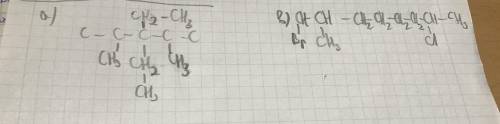 a)
CH2-CH3
C - C - C - C - C
CH3 CH2 CH3
CH3
в) CH CH - CH2 CH2-CH2 CH2 CH-CH3
Br CH3 Cl